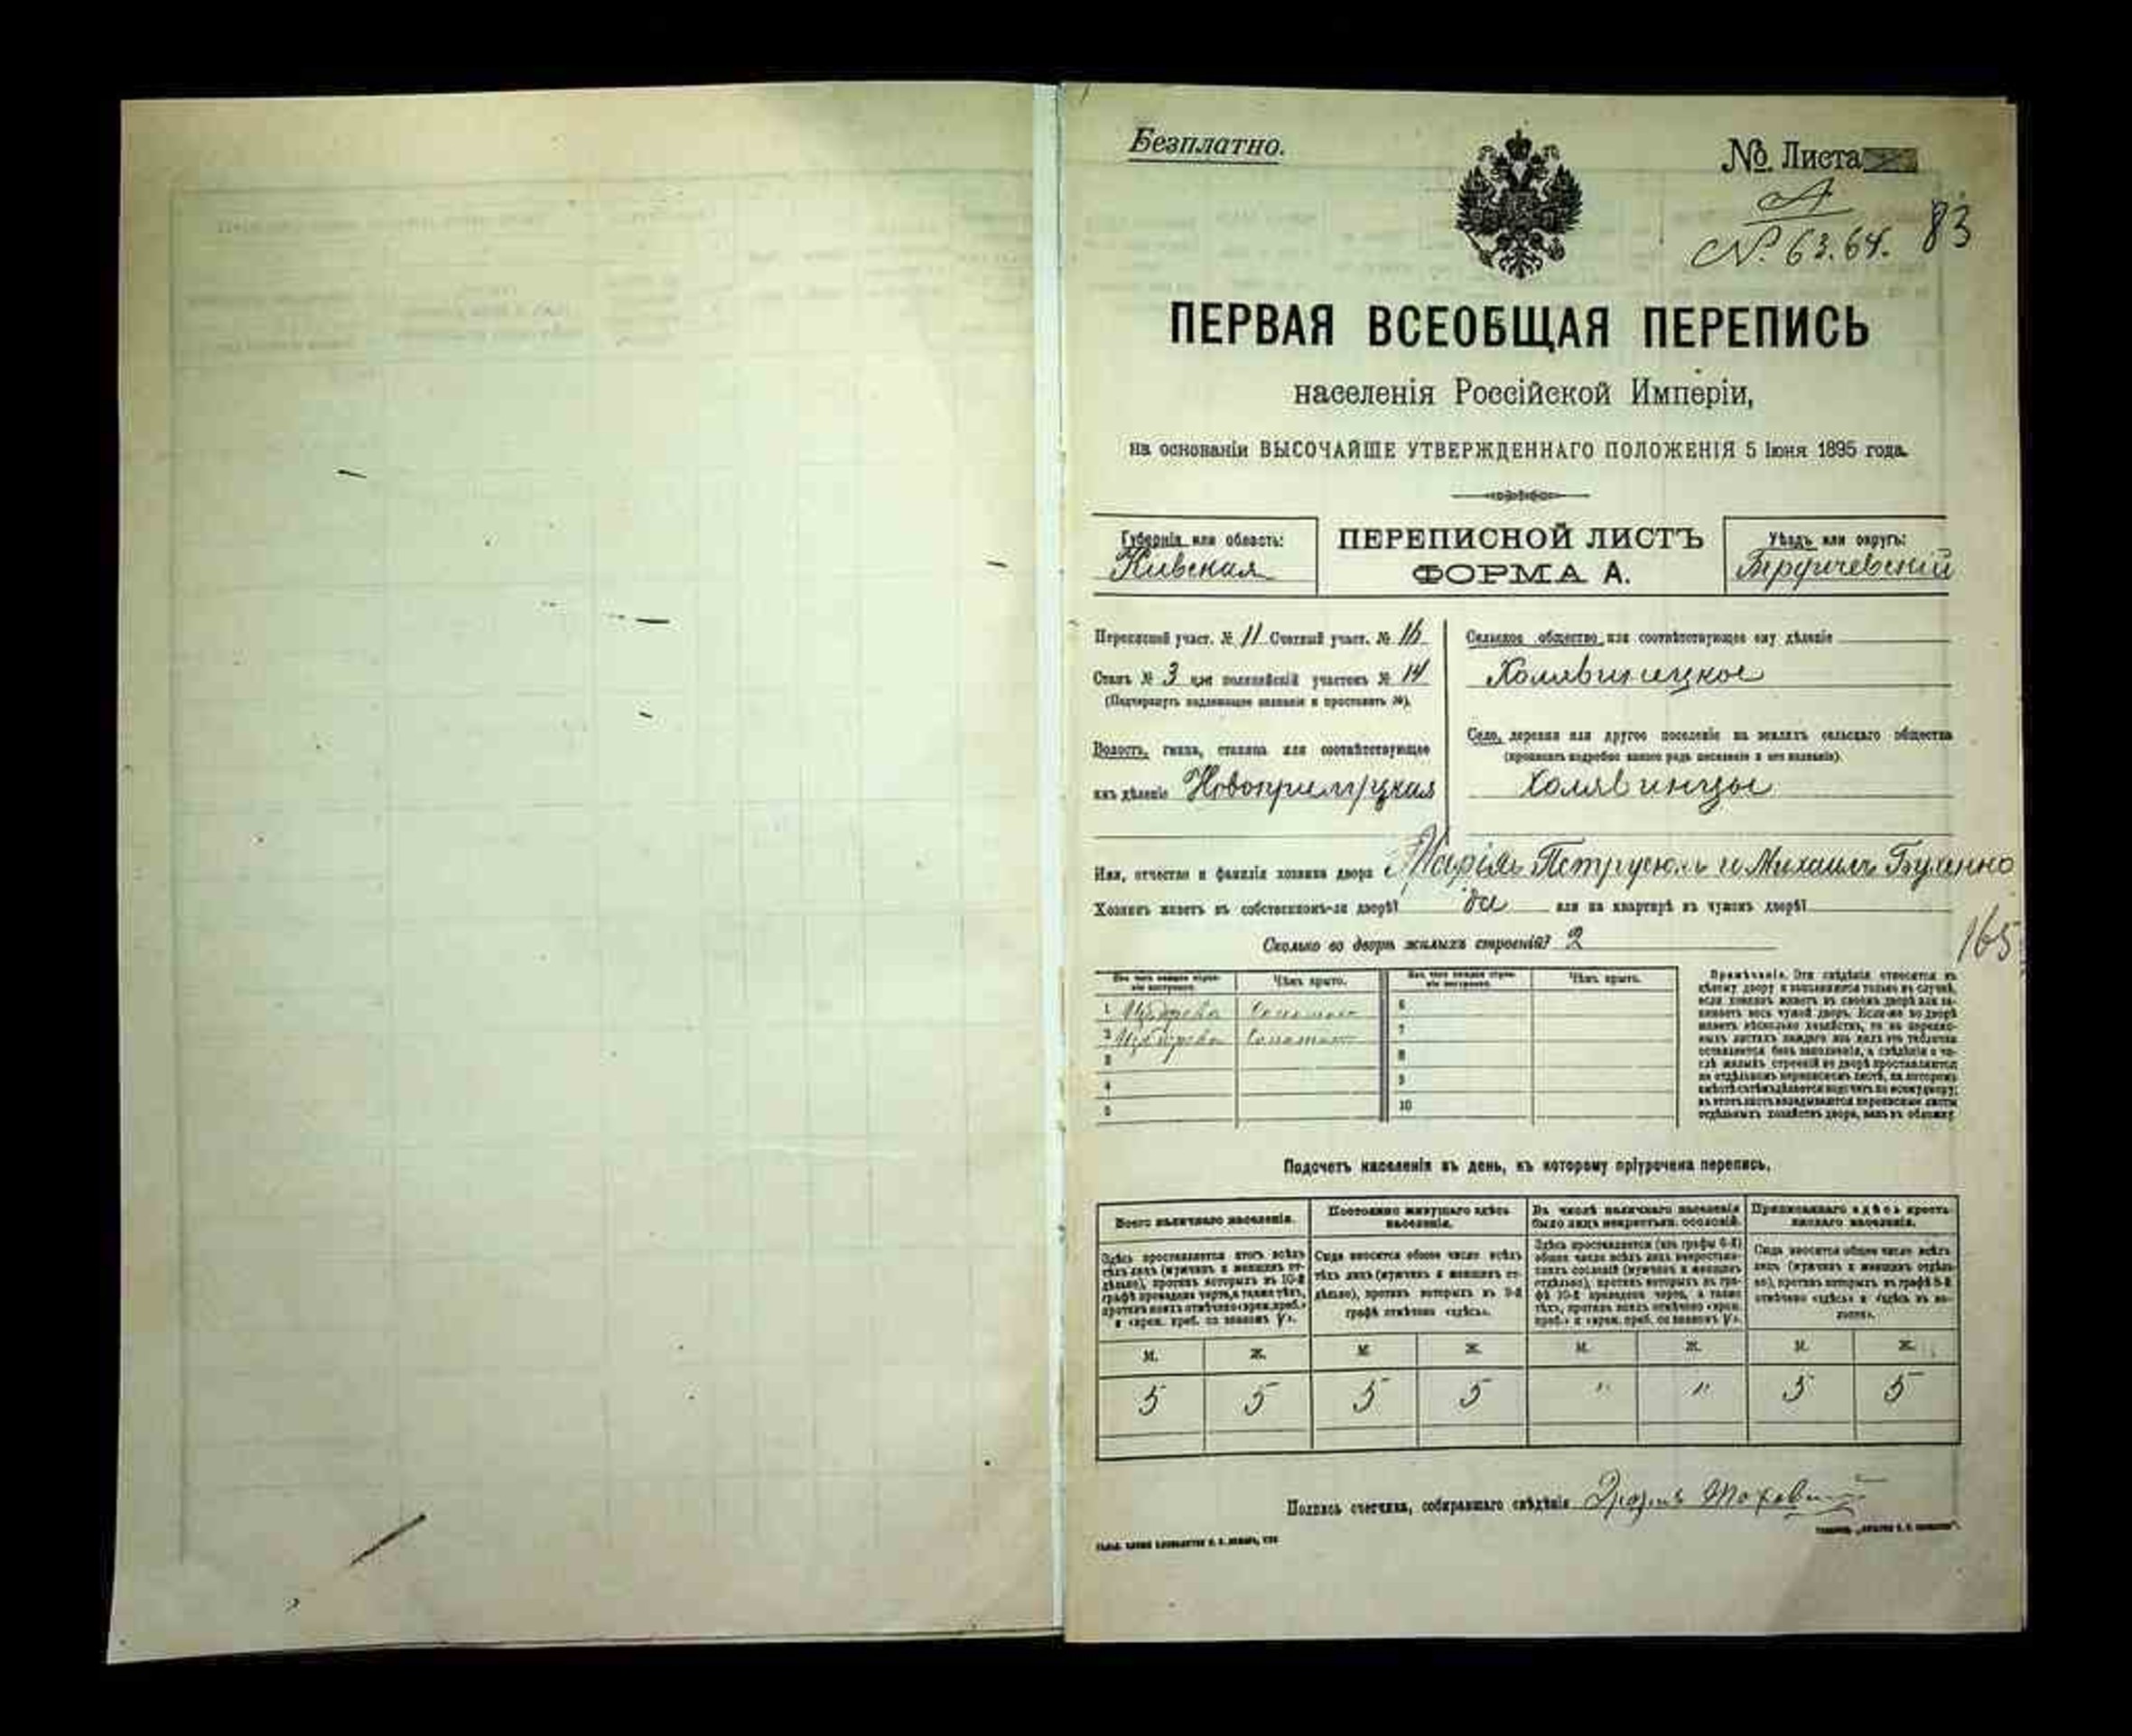 Безплатно.
№ Листа
А
№ 63.64. 83
ПЕРВАЯ ВСЕОБЩАЯ ПЕРЕПИСЬ
населенія Россійской Имперіи,
на основаніи ВЫСОЧАЙШЕ УТВЕРЖДЕННАГО ПОЛОЖЕНІЯ 5 Іюня 1895 года.
Губернія или область:
Кіевская
ПЕРЕПИСНОЙ ЛИСТЪ
ФОРМА А.
Уѣздъ или округъ:
Бердичевскій
Переписной участ. № 11 Счетный участ. № 16
Станъ № 3 или полицейскій участокъ № 14
(Подчеркнуть надлежащее названіе и проставить №).
Волость, гмина, станица или соотвѣтствующее
имъ дѣленіе Новоприлуцкая
Сельское общество или соотвѣтствующее ему дѣленіе
Холявинецкое
Село, деревня или другое поселеніе на земляхъ сельскаго общества
(прописать подробно какого рода поселеніе и его названіе).
Холявинцы
Имя, отчество и фамилія хозяина двора и Михаилъ
Хозяинъ живетъ въ собственномъ-ли дворѣ? да или на квартирѣ въ чужомъ дворѣ?
165
Сколько во дворѣ жилыхъ строеній? 2
Изъ чего каждое строеніе построено. Чѣмъ крыто. Изъ чего каждое строеніе построено. Чѣмъ крыто.
1 6
2 7
3 8
4 9
5 10
Примѣчаніе. Эти свѣдѣнія относятся къ
цѣлому двору и заполняются только въ случаѣ,
если хозяинъ живетъ въ своемъ дворѣ или за-
нимаетъ весь чужой дворъ. Если-же во дворѣ
живетъ нѣсколько хозяйствъ, то на перепис-
ныхъ листахъ каждаго изъ нихъ эта табличка
оставляется безъ заполненія, а свѣдѣнія о чи-
слѣ жилыхъ строеній во дворѣ проставляются
на отдѣльномъ переписномъ листѣ, на которомъ
вмѣстѣ съ тѣмъ дѣлается подсчетъ по всему двору;
въ этотъ листъ вкладываются переписные листы
отдѣльныхъ хозяйствъ двора, какъ въ обложку.
Подсчетъ населенія въ день, къ которому пріурочена перепись.
Всего наличнаго населенія.
Здѣсь проставляется итогъ всѣхъ
тѣхъ лицъ (мужчинъ и женщинъ от-
дѣльно), противъ которыхъ въ 10-й
графѣ проведена черта, а также тѣхъ,
противъ коихъ отмѣчено «врем. преб.»
и «врем. преб. со знакомъ V».
Постоянно живущаго здѣсь
населенія.
Сюда вносится общее число всѣхъ
тѣхъ лицъ (мужчинъ и женщинъ от-
дѣльно), противъ которыхъ въ 9-й
графѣ отмѣчено «здѣсь».
Въ числѣ наличнаго населенія
было лицъ некрестьян. сословій.
Здѣсь проставляется (изъ графы 6-й)
общее число всѣхъ лицъ некрестьян-
скихъ сословій (мужчинъ и женщинъ
отдѣльно), противъ которыхъ въ гра-
фѣ 10-й проведена черта, а также
тѣхъ, противъ коихъ отмѣчено «врем.
преб.» и «врем. преб. со знакомъ V».
Приписаннаго здѣсь кресть-
янскаго населенія.
Сюда вносится общее число всѣхъ
лицъ (мужчинъ и женщинъ отдѣль-
но), противъ которыхъ въ графѣ 8-й
отмѣчено «здѣсь» и «здѣсь въ во-
лости».
М. Ж. М. Ж. М. Ж. М. Ж.
5 5 5 5 " " 5 5
Подпись счетчика, собиравшаго свѣдѣнія